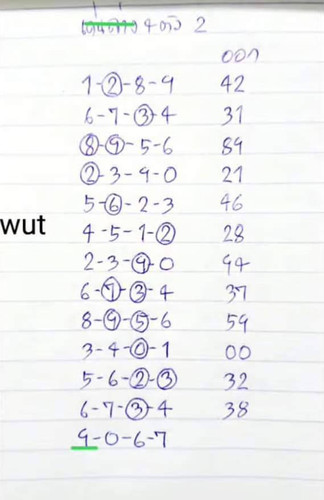 4 ตัว 2
ออก
1-2-8-9 42
6-7-3-4 31
8-9-5-6 89
2-3-9-0 21
5-6-2-3 46
wut
4-5-1-2 28
2-3-9-0 94
6-7-3-4 37
8-9-5-6 59
3-4-0-1 00
5-6-2-3 32
6-7-3-4 38
9-0-6-7